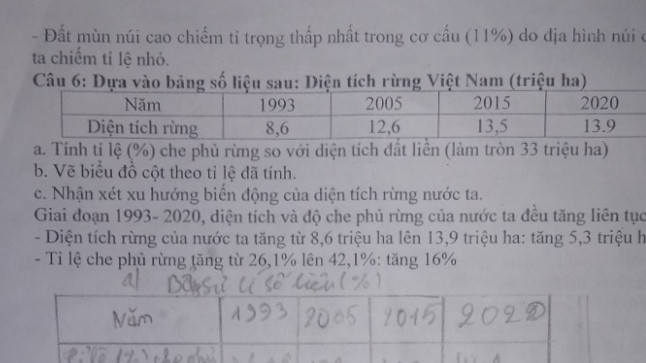 - Đất mùn núi cao chiếm tỉ trọng thấp nhất trong cơ cấu (11%) do địa hình núi
ta chiếm tỉ lệ nhỏ.
Câu 6: Dựa vào bảng số liệu sau: Diện tích rừng Việt Nam (triệu ha)
Năm 1993 2005 2015 2020
Diện tích rừng 8,6 12,6 13,5 13.9
a. Tính tỉ lệ (%) che phủ rừng so với diện tích đất liền (làm tròn 33 triệu ha)
b. Vẽ biểu đồ cột theo tỉ lệ đã tính.
c. Nhận xét xu hướng biến động của diện tích rừng nước ta.
Giai đoạn 1993- 2020, diện tích và độ che phủ rừng của nước ta đều tăng liên tục
- Diện tích rừng của nước ta tăng từ 8,6 triệu ha lên 13,9 triệu ha: tăng 5,3 triệu
- Tỉ lệ che phủ rừng tăng từ 26,1% lên 42,1%: tăng 16%
a) số liệu (%)
Năm 1993 2005 2015
(%) che phủ